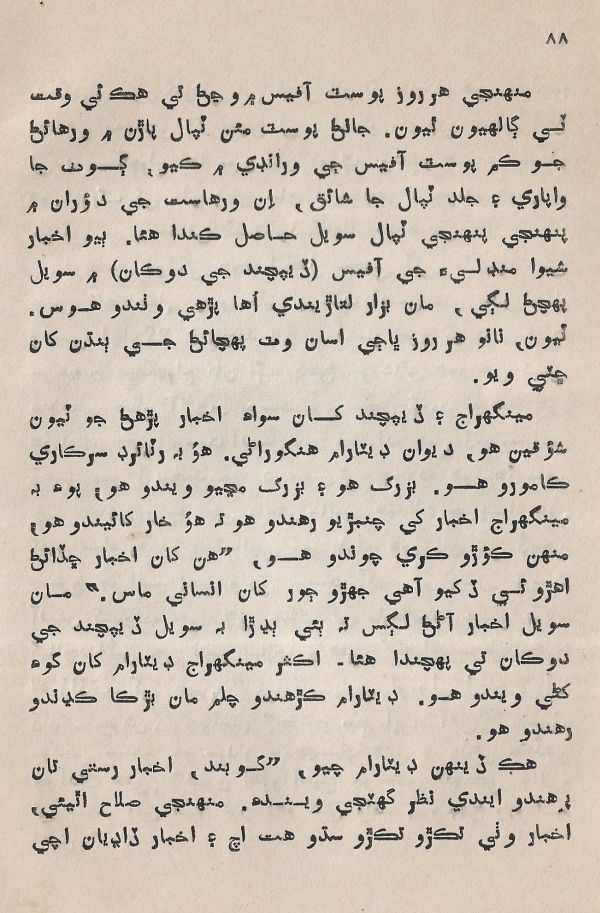 ۸۸
منهنجي هرروز پوسٽ آفيس ۾ وڃڻ ئي هڪ ئي وقت
ٽي ڳالهيون ٿيون. جائڻ پوسٽ مئن ٽپال پاڙن ۾ ورهائڻ
جو ڪم پوسٽ آفيس جي ورانڊي ۾ ڪيو، ڳوٺ جا
واپاري ۽ جلد ٽپال جا شائق، اِن ورهاست جي دؤران ۾
پنهنجي پنهنجي ٽپال سويل حاصل ڪندا هئا. ٻيو اخبار
شيوا منڊليءَ جي آفيس (ڏيپچند جي دوڪان) ۾ سويل
پهچڻ لڳي، مان بزار لتاڙيندي اُها پڙهي وٺندو هوس.
ٽيون، نانو هرروز ڀاڄي اسان وٽ پهچائڻ جي ٻنڌن کان
ڇٽي ويو.
مينگهراج ۽ ڏيپچند کان سواءِ اخبار پڙهڻ جو ٽيون
شؤقين هو، ديوان ڊيٽارام هنگوراڻي. هؤ بہ رٽائرڊ سرڪاري
ڪامورو هو. بزرگ هو ۽ بزرگ مڃيو ويندو هو، پوءِ بہ
مينگهراج اخبار کي چنبڙيو رهندو هو تہ هؤ خار کائيندو هو،
منهن ڪؤڙو ڪري چوندو هو، ”هن کان اخبار ڇڏائڻ
اهڙو ئي ڏکيو آهي جهڙو ڄور کان انساني ماس.“ مان
سويل اخبار آڻڻ لڳس تہ ٻئي ٻڍڙا بہ سويل ڏيپچند جي
دوڪان تي پهچندا هئا۔ اڪثر مينگهراج ڊيٽارام کان گوءِ
کڻي ويندو هو. ڊيٽارام ڪڙهندو چلم مان بڙڪا ڪڍندو
رهندو هو.
هڪ ڏينهن ڊيٽارام چيو، ”گوبند، اخبار رستي تان
پڙهندو ايندي نظر گهٽجي ويندءِ. منهنجي صلاح اٿيئي،
اخبار وٺي تڪڙو تڪڙو سڌو هت اچ ۽ اخبار ڏاڍيان اچي